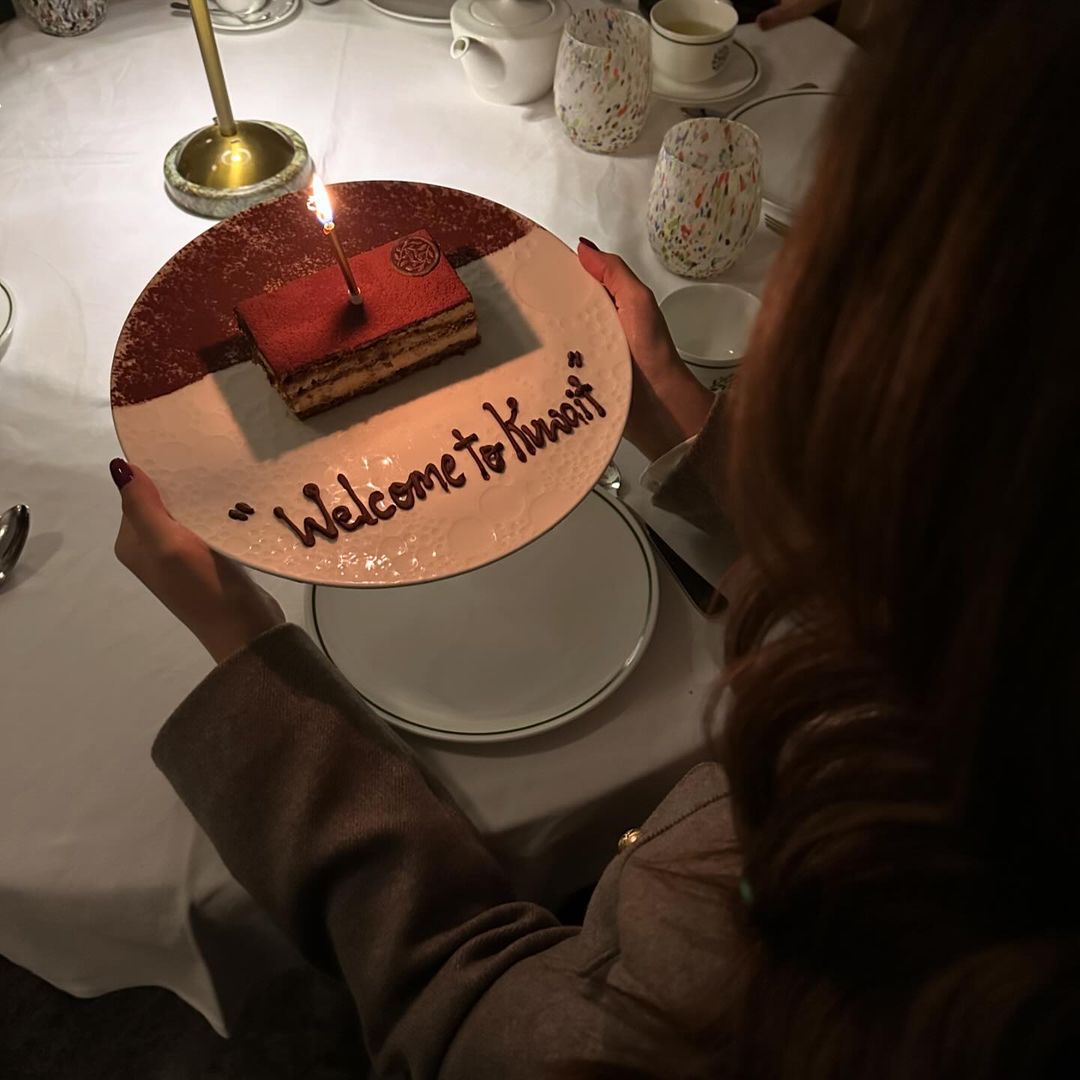 "Welcome to Kuwait"